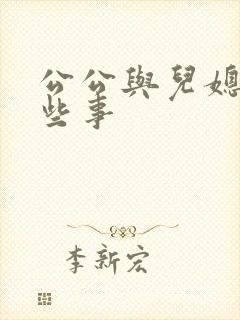 公公與兒媳
些事
李新宏